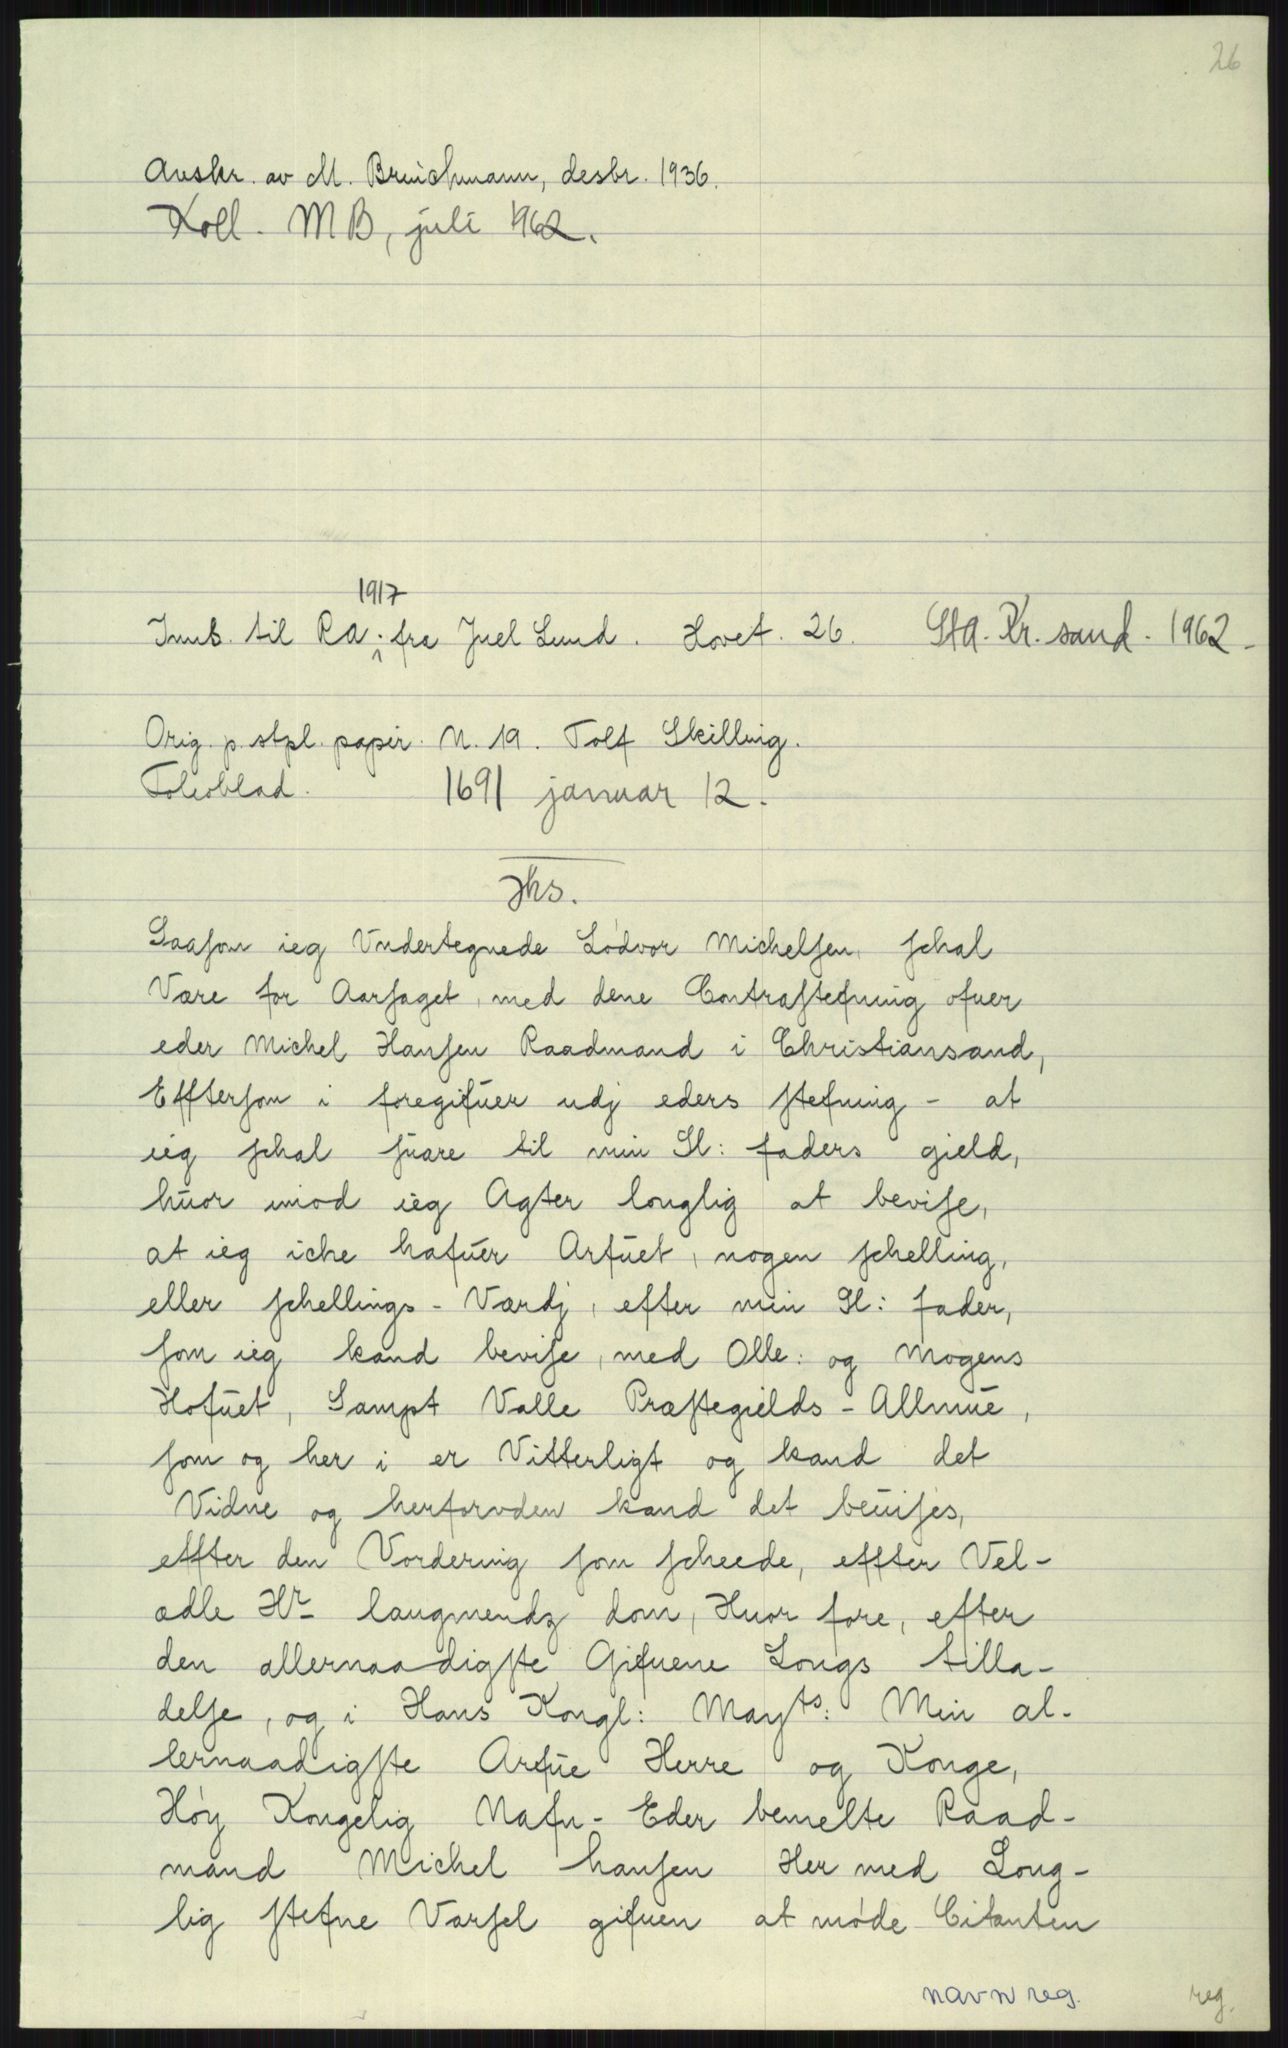 26
Avskr. av M. Brinchmann, desbr. 1936.
Koll. MB, juli 1962.
1917
Innb. til RA. fra Juel Lund. Hovet. 26. StA. Kr. sand. 1962.
Orig. p. stpl. papir. N. 19. Tolf Skilling.
Folioblad. 1691 januar 12.
Jhs.
Saaſom ieg Vndertegnede Lódvor Michelſen, ſchal
Være for Aarſaget, med dene Contraſtefning ofuer
eder Michel Hanſen Raadmand i Christiansand,
Effterſom i foregifuer udj eders ſtefning - at
ieg ſchal ſuare til min Sl: faders gield,
huor imod ieg Agter louglig at beviſe,
at ieg icke hafuer Arfuet, nogen ſchelling,
eller ſchellings-Værdj, efter min Sl: fader,
ſom ieg kand beviſe, med Olle: og Mogens
Hofuet, Sampt Valle Præſtegields-Allmue,
ſom og her i er Vitterligt og kand det
Vidne og herforvden kand det beuiſes,
effter den Vordering ſom ſcheede, effter Vel-
ædle Hr. laugmendz dom, Huor fore, efter
den allernaadigſte Gifuene Lougs tilla-
delſe, og i Hans Kongl: Mayts: Min al-
lernaadigſte Arfue Herre og Konge,
Hóy Kongelig Nafn- Eder bemelte Raad-
mand Michel hanſen Her med Loug-
lig ſtefne Varſel gifuen at móde Citanten
navn reg. reg.